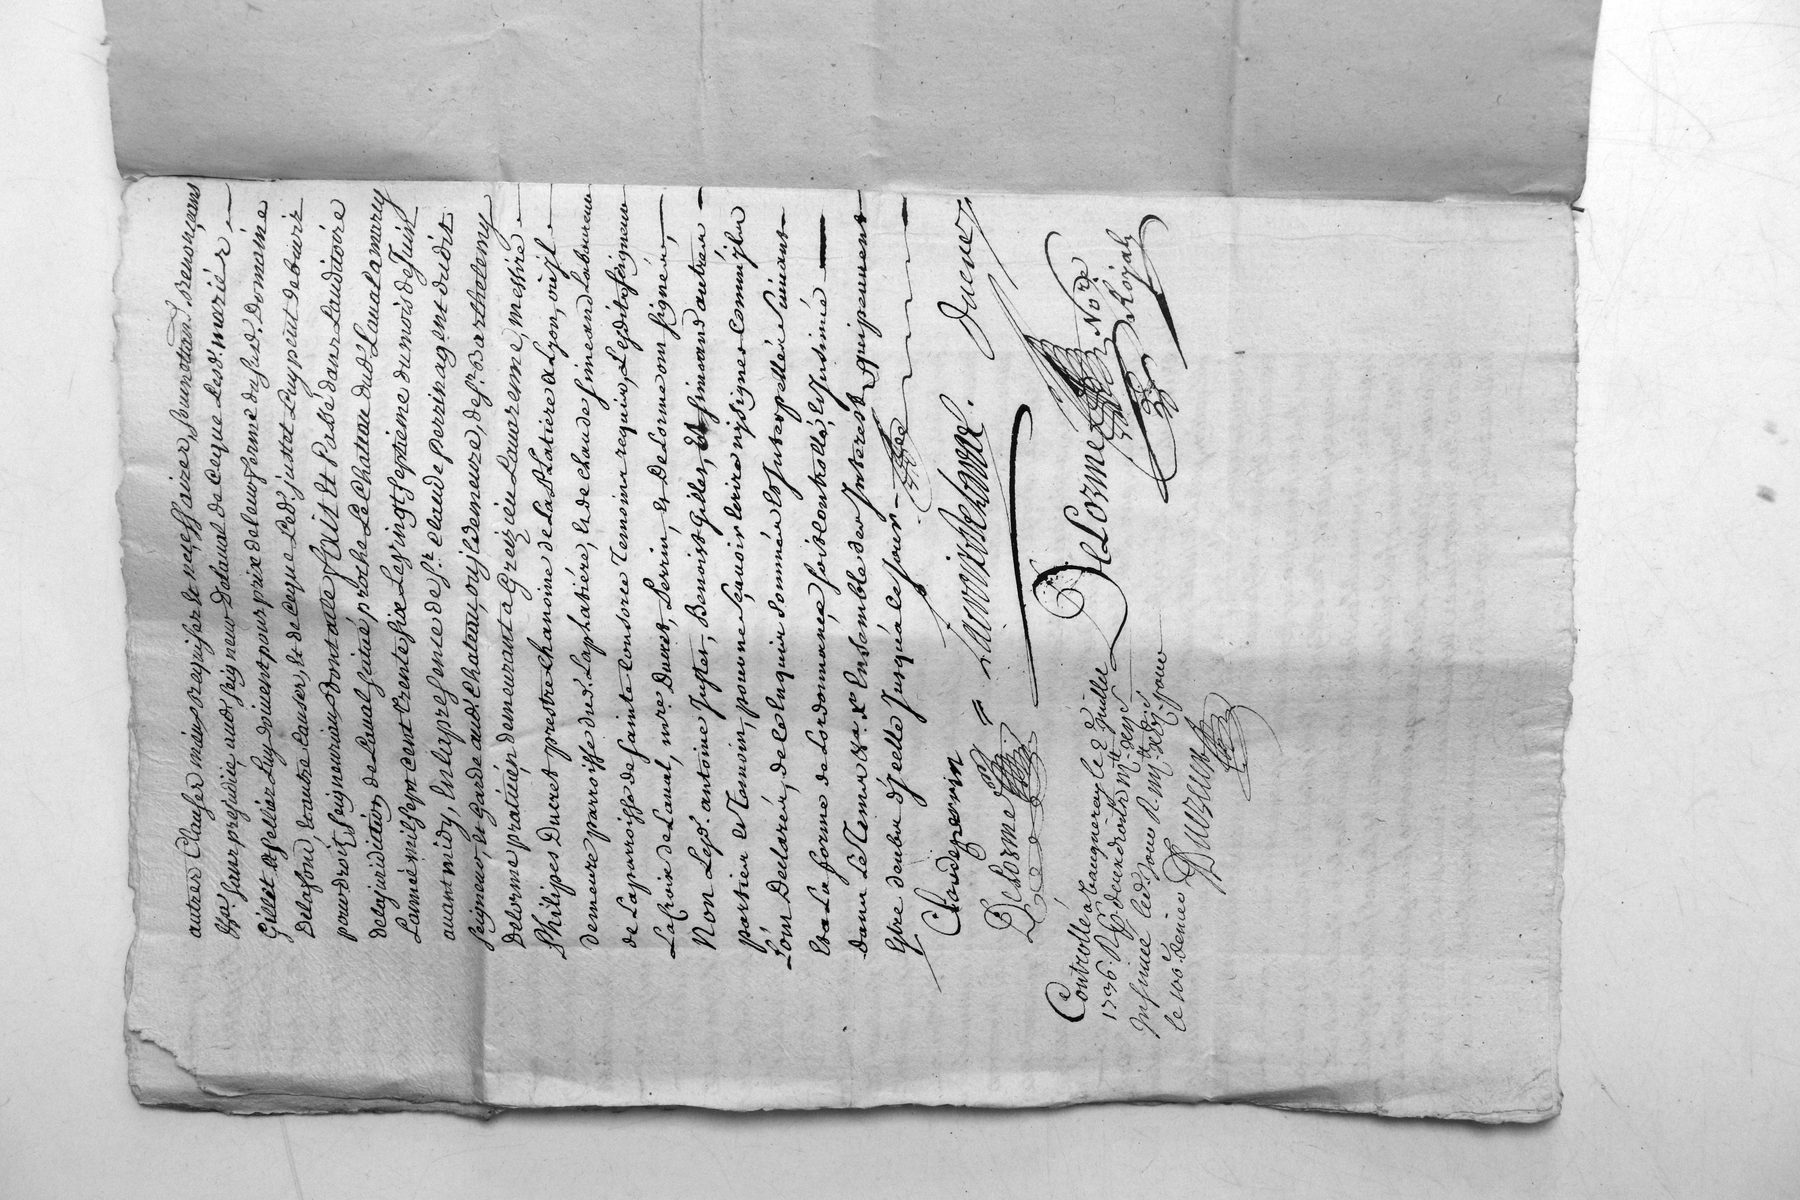 autres Clauses mises requises et necessaires, soumettans, renonçeans
&pa. sans prejudice audt. seigneur Delaual de ceque lesd. mariés
Gillet et pellier Luy doiuent pour prix de leur ferme dusud. Domaine
Delafond, et autres causes, et de ceque led. justet Luy peut deburs
pour droits seigneuriaux dont acte fait et Passé dans Lauditoire
delajuridition de Laual scitué proche Le Chateau dud. Laual amarcy
Lanné mil sept Cent trente six Le vingt septieme du mois de Juin
auant midy, En la presence de sr. Claude perrin agent dudit
seigneur, et garde aud. Chateau, ouil demeure, de sr. Bartholemy
Delorme praticien demeurant a Grezieu Lauarenne, messire
Philipes Ducret prestre Chanoine de La Platiere a Lyon, ouil
demeure parroisse dud. Laplatiere, et de Claude simeand Laboureur
de Laparroisse de sainte Consorce Temoins requis, Ledit seigneur
La Croix de Laual, mre Ducret, Perrin, et Delorme ont signé,
Non Lesd. antoine Justet, Benoist Gillet, et simeand autres
parties et Temoin, pour ne sçauoir Ecrire ny signer comme ilz
L'ont Declaré, de ce Enquis sommés et Interpellés suiuant
Et a La forme de Lordonnance, soit Controllé, et Insinué
dans Le Temps &a. Xe. Ensemble des Interest qui peuuent
Estre deubs d'Jcelle Jusqu'a ce Jour
Claude perrin = Lacroix de Laval. Ducret
DeLorme DeLorme Nore. Royal
Controllé a Vaugneray le 2e Juillet
1736. R. des droits
Insinué led. jour R.
le 100e denier